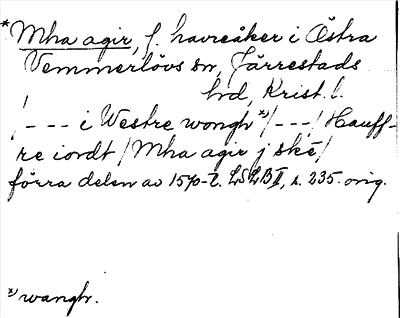 *Mha agir, f. havreåker i Östra
Vemmerlövs sn, Järrestads
hd, Krist. l.
/--- i Westre wongh *)/---/ Hauff-
re iordt /Mha agir j ske/
förra delen av 1570-t. LSLB II, s. 235. orig.
*) wangh.